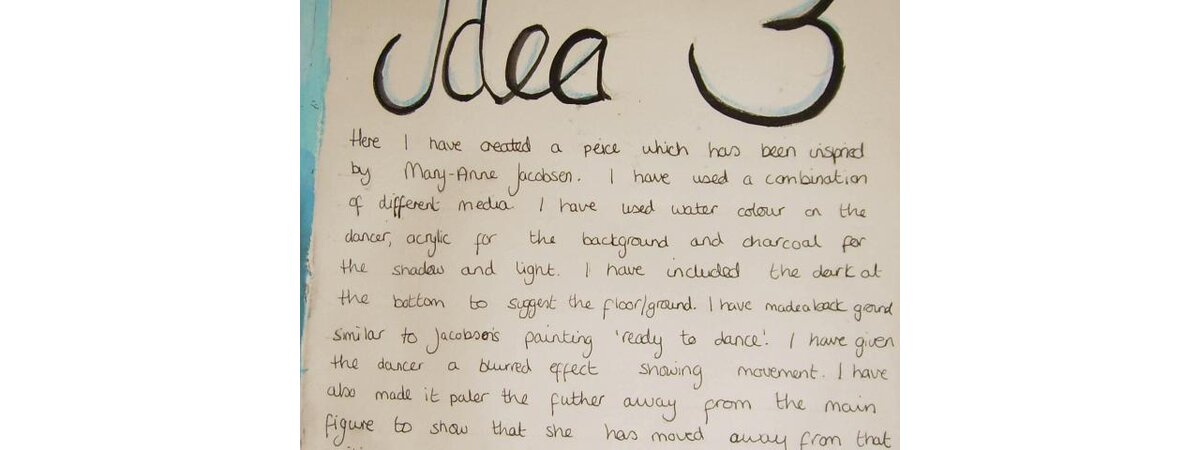 Idea 3
Here I have created a peice which has been inspried
by Mary-Anne Jacobsen. I have used a combination
of different media. I have used water colour on the
dancer, acrylic for the background and charcoal for
the shadow and light. I have included the dark at
the bottom to suggest the floor/ground. I have made a back ground
similar to Jacobsen's painting 'ready to dance'. I have given
the dancer a blurred effect showing movement. I have
also made it paler the futher away from the main
figure to show that she has moved away from that